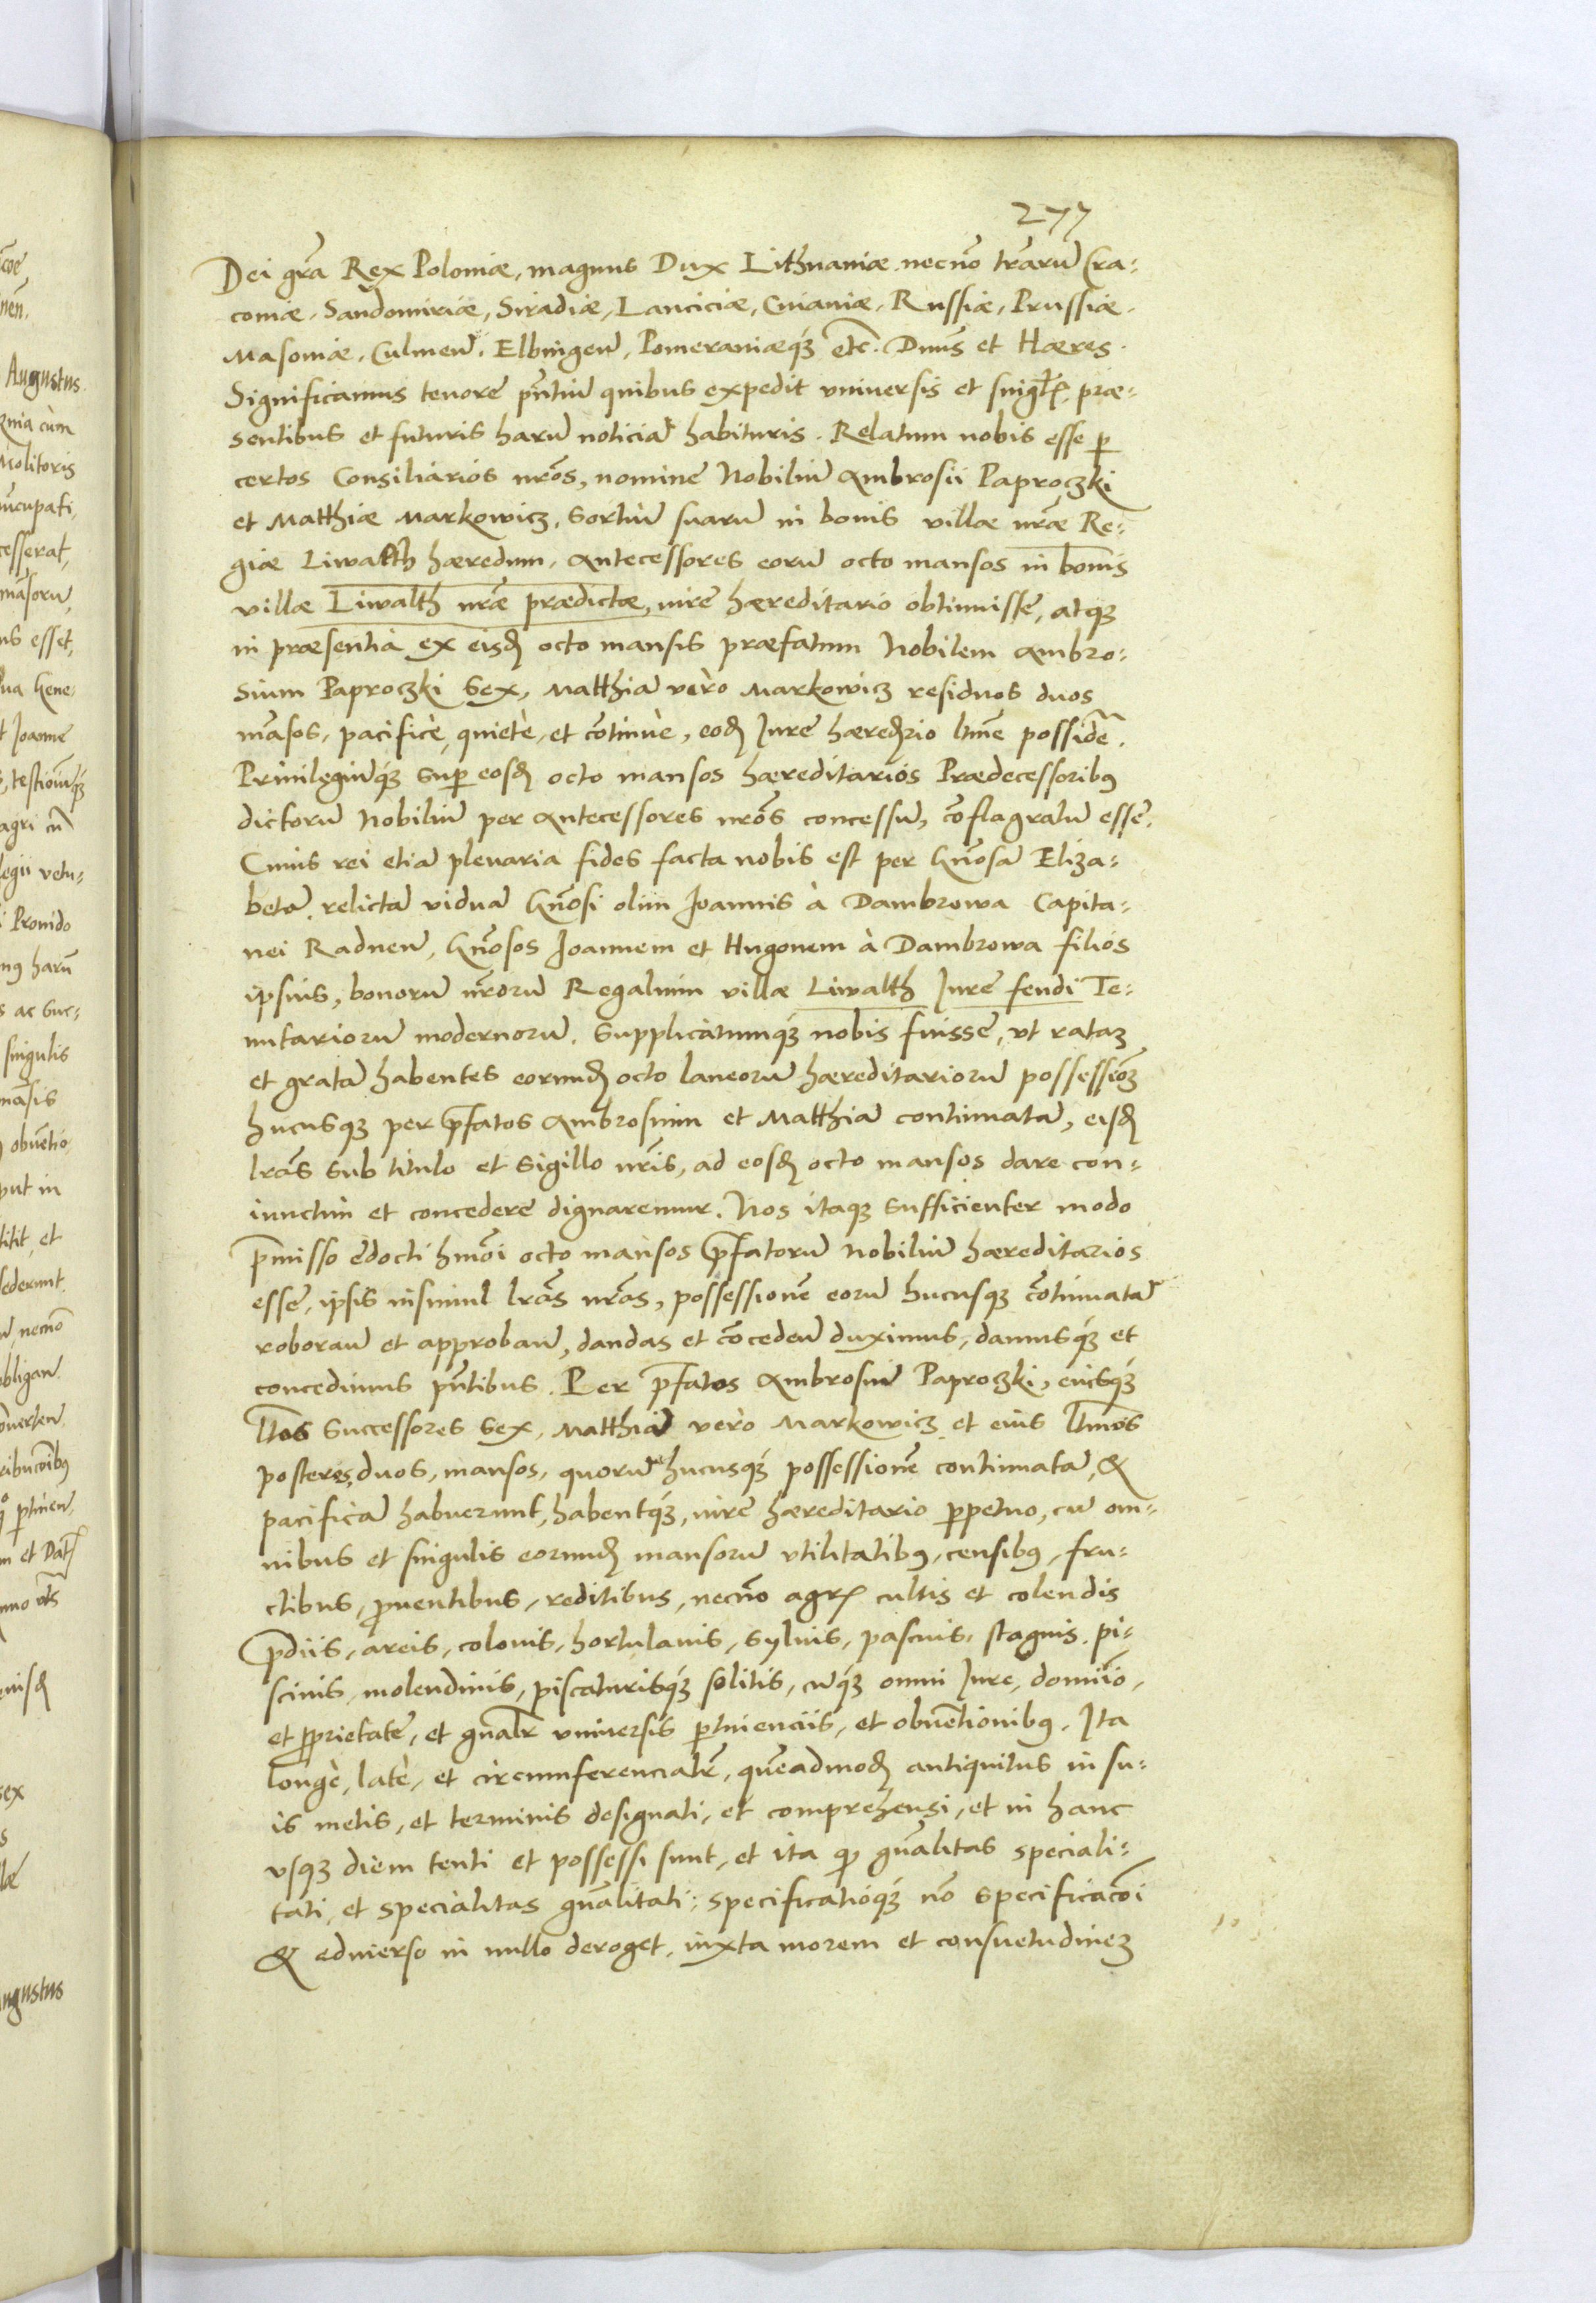 277
Dei gr̃a Rex Poloniæ, magnus Dux Lithuaniæ necnõ tr̃arũ Cra-
couiæ, Sandomiriæ, Siradiæ, Lanciciæ, Cuiauiæ, Russiæ, Prussiæ,
Masouiæ, Culmeñ, Elbingeñ, Pomeraniæq́ꝫ etc. Dñus et Hæres.
Significamus tenorẽ pñtiũ quibus expedit vniuersis et singl̃is, præ-
sentibus et futuris harũ noticiã habituris. Relatum nobis esse ꝑ
certos Consiliarios nr̃os, nominẽ Nobiliũ Ambrosii Paproczki
et Matthiæ Markowicz, sortiũ suarũ in bonis villæ nr̃æ Re-
giæ Liwalth hæredum, Antecessores eorũ octo mansos in bonis
villæ Liwalth nr̃æ prædictæ, iurẽ hæreditario obtinuissẽ, atqꝫ
in præsentia ex eisd̃ octo mansis præfatum Nobilem Ambro-
sium Paproczki sex, Matthiã vèro Markowicz residuos duos
mãsos, pacificè, quietè, et cõtinuè, eod̃ Iurẽ hæred̃rio ltmẽ possidẽ.
Priuilegiũq́ꝫ suꝑ eosd̃ octo mansos hæreditarios Prædecessoribꝰ
dictorũ Nobiliũ per Antecessores nr̃os concessũ, cõflagratũ essẽ.
Cuius rei etiã plenaria fides facta nobis est per Gñosã Eliza-
betã relictã viduã Gñosi olim Joannis à Dambrowa Capita-
nei Radneñ, Gñosos Joannem et Hugonem à Dambrowa filios
ipsius, bonorũ nr̃orũ Regalium villæ Liwalth Iurẽ feudi Te-
nutariorũ modernorũ. Supplicatumq́ꝫ nobis fuissẽ, vt rataꝫ
et gratã habentes eorund̃ octo laneorũ hæreditariorũ possessiõꝫ
hucusqꝫ per p̃fatos Ambrosium et Matthiã continuatã, eisd̃
lr̃as sub titulo et sigillo nr̃is, ad eosd̃ octo mansos dare con-
iunctim et concederẽ dignaremur. Nos itaqꝫ sufficienter modo
p̃misso edocti hmõi octo mansos p̃fatorũ Nobiliũ hæreditarios
essẽ, ipsis insimul lr̃as nr̃as, possessionẽ eorũ hucusqꝫ cõtinuatã
roborañ et approbañ, dandas et cõcedeñ duximus, damusq́ꝫ et
concedimus pñtibus. Per p̃fatos Ambrosiũ Paproczki, eiusq́ꝫ
ltõs Successores sex, Matthiã vèro Markowicz et eius ltmõs
posteros, duos, mansos, quorũ hucusq́ꝫ possessionẽ continuatã, &
pacificã habuerunt, habentq́ꝫ, iurẽ hæreditario ꝑpetuo, cũ om-
nibus et singulis eorund̃ mansorũ vtilitatibꝰ, censibꝰ, fru-
ctibus, ꝓuentibus, reditibus, necnõ agris cultis et colendis
p̃diis, areis, colonis, hortulanis, syluis, pascuis, stagnis, pi-
scinis, molendinis, piscaturisq́ꝫ solitis, cũq́ꝫ omni Iure, dominio,
et ꝓprietatẽ, et gñalr̃ vniuersis ꝑtinenciis, et obuẽtionibꝰ. Ita
longè, latè, et circumferencialr̃, quẽadmod̃ antiquitus in su-
is metis, et terminis designati, et comprehensi, et in hanc
vsqꝫ diem tenti et possessi sunt, et ita ꝙ gñalitas speciali-
tati, et specialitas gñalitati: specificatioq́ꝫ nõ specificacõi
& eduerso in nullo deroget, iuxta morem et consuetudineꝫ